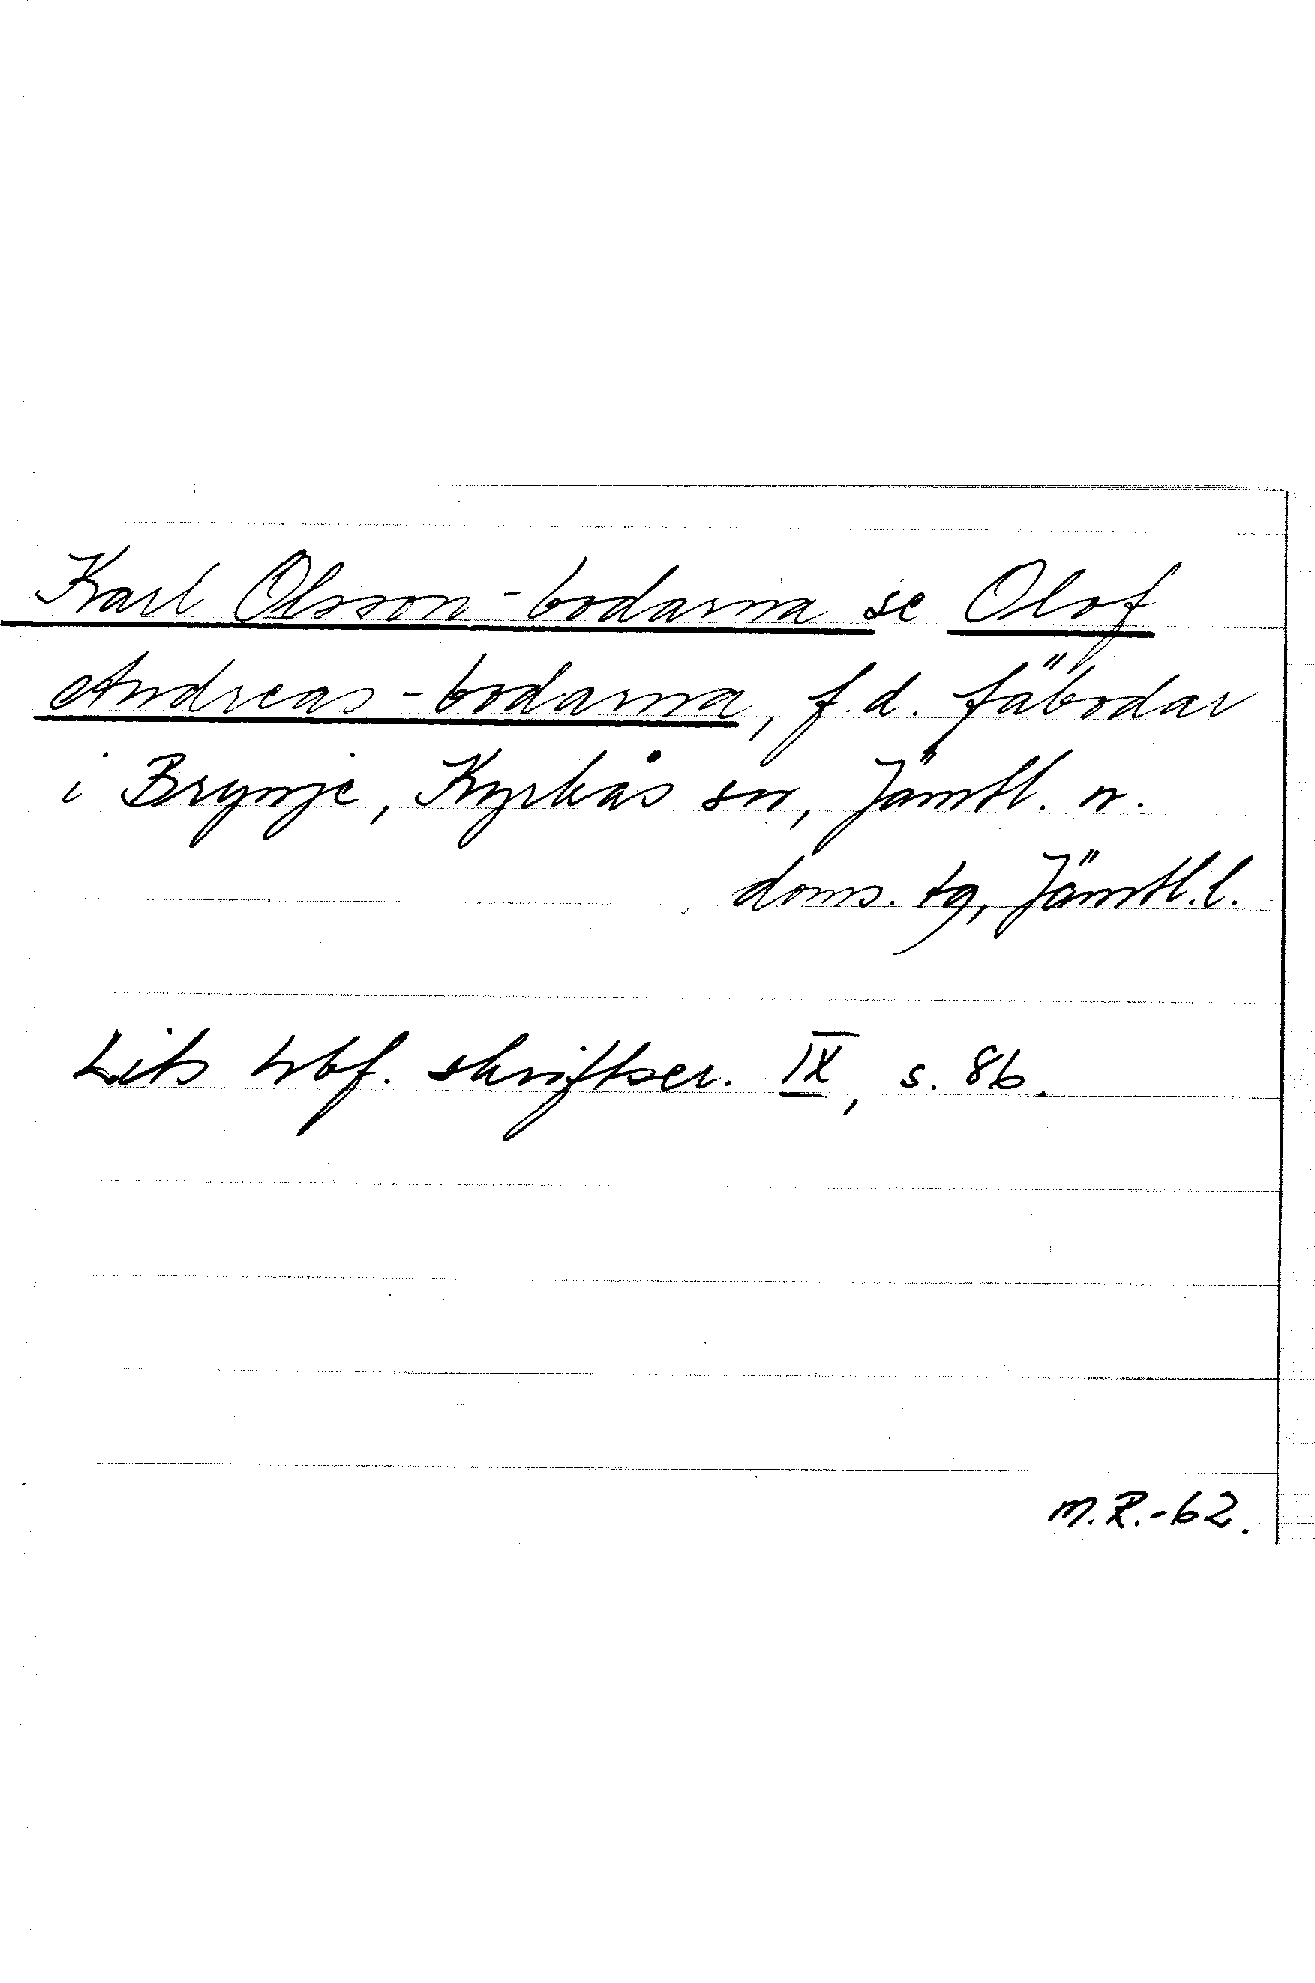 Karl Olsson-bodarna se Olof
Andreas-bodarna, f.d. fäbodar
i Brynje, Kyrkås sn, Jämtl. n.
doms. tg, Jämtl.l.
Lits hbf. skriftser. IX, s. 86.
M.R.-62.